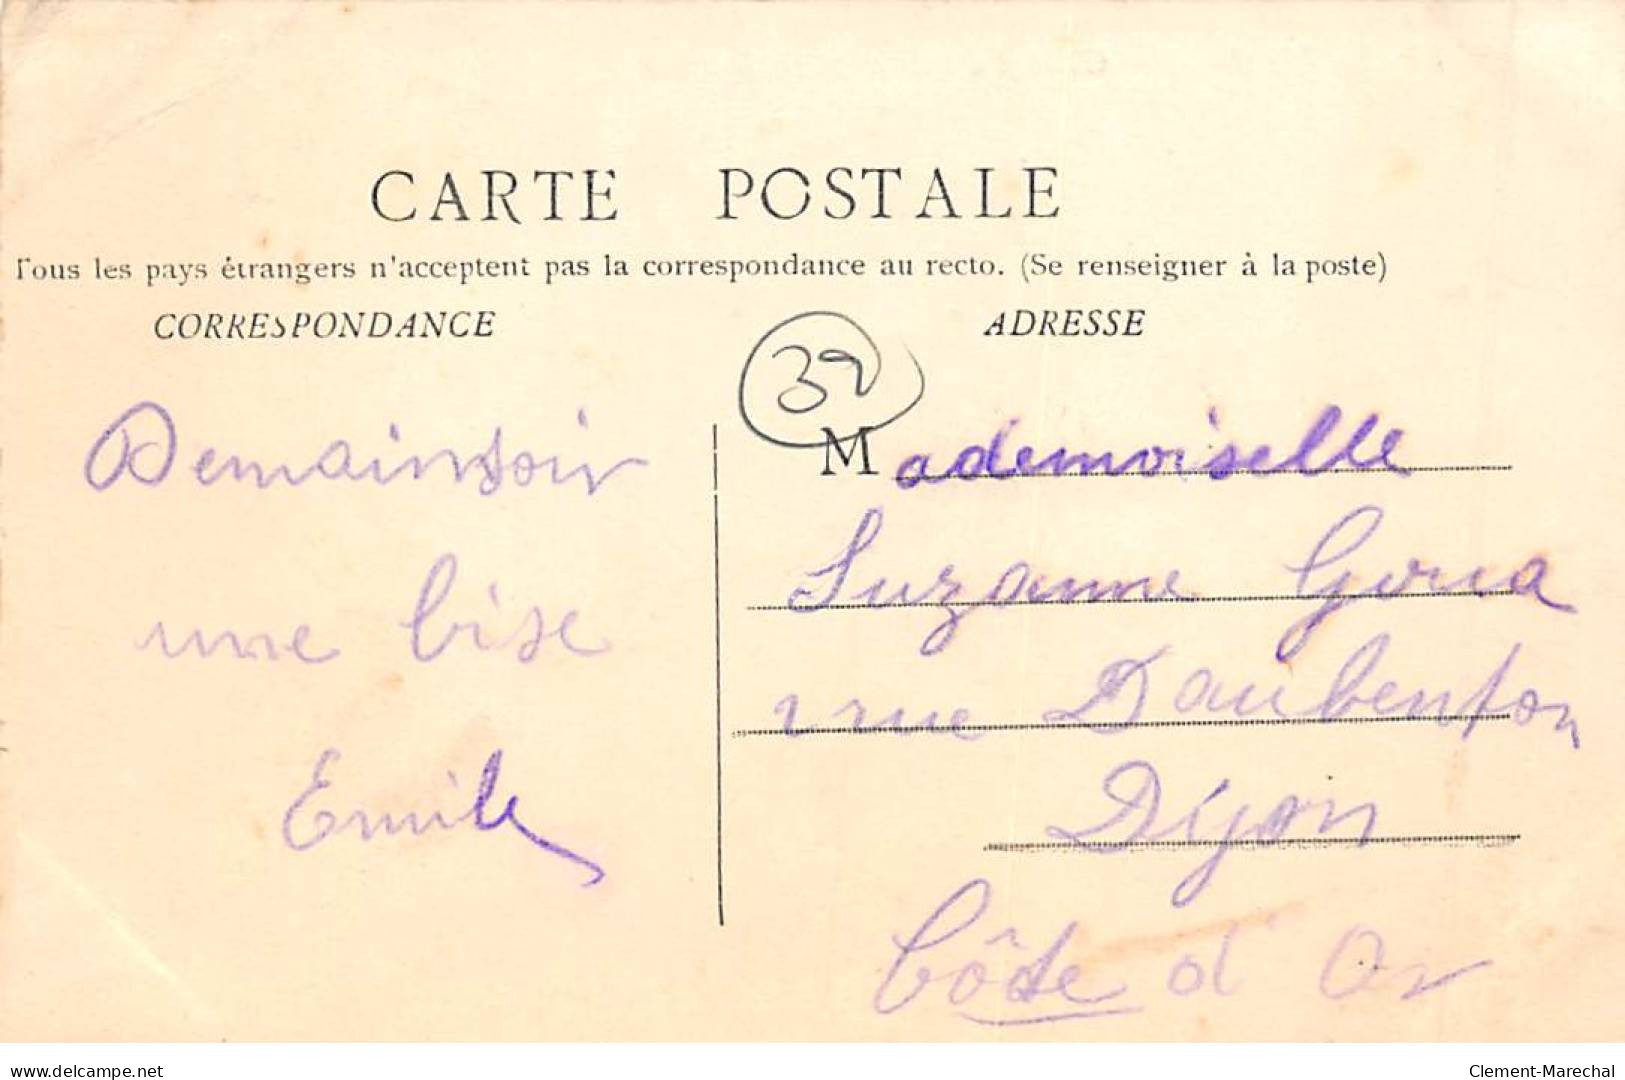 CARTE POSTALE
Tous les pays étrangers n'acceptent pas la correspondance au recto. (Se renseigner à la poste)
CORRESPONDANCE
ADRESSE
39
Demain soir
une bise
Emile
Mademoiselle
Suzanne
rue Daubenton
Dijon
Côte d'Or
www.delcampe.net
Clement-Marechal